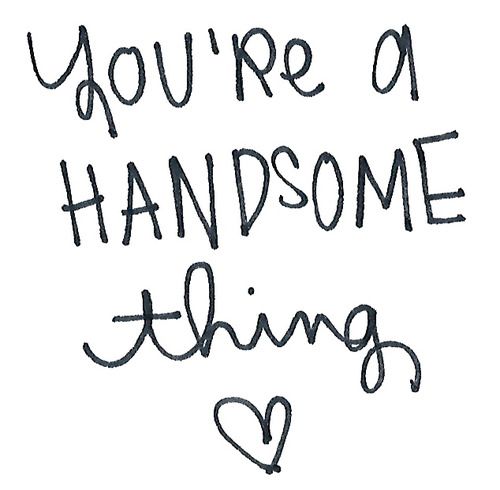 you'Re a
HANDSOME
thing